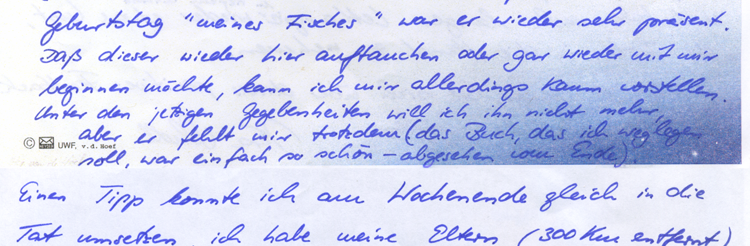 Geburtstag "meines Fisches" war er wieder sehr präsent.
Daß dieser wieder hier auftauchen oder gar wieder mit mir
beginnen möchte, kann ich mir allerdings kaum vorstellen.
Unter den jetzigen Gegebenheiten will ich ihn nicht mehr,
aber er fehlt mir trotzdem (das Buch, das ich weglegen
© UWF, v.d. Hoef
soll, war einfach so schön – abgesehen vom Ende).
Einen Tipp konnte ich am Wochenende gleich in die
Tat umsetzen, ich habe meine Eltern (300 Km entfernt)